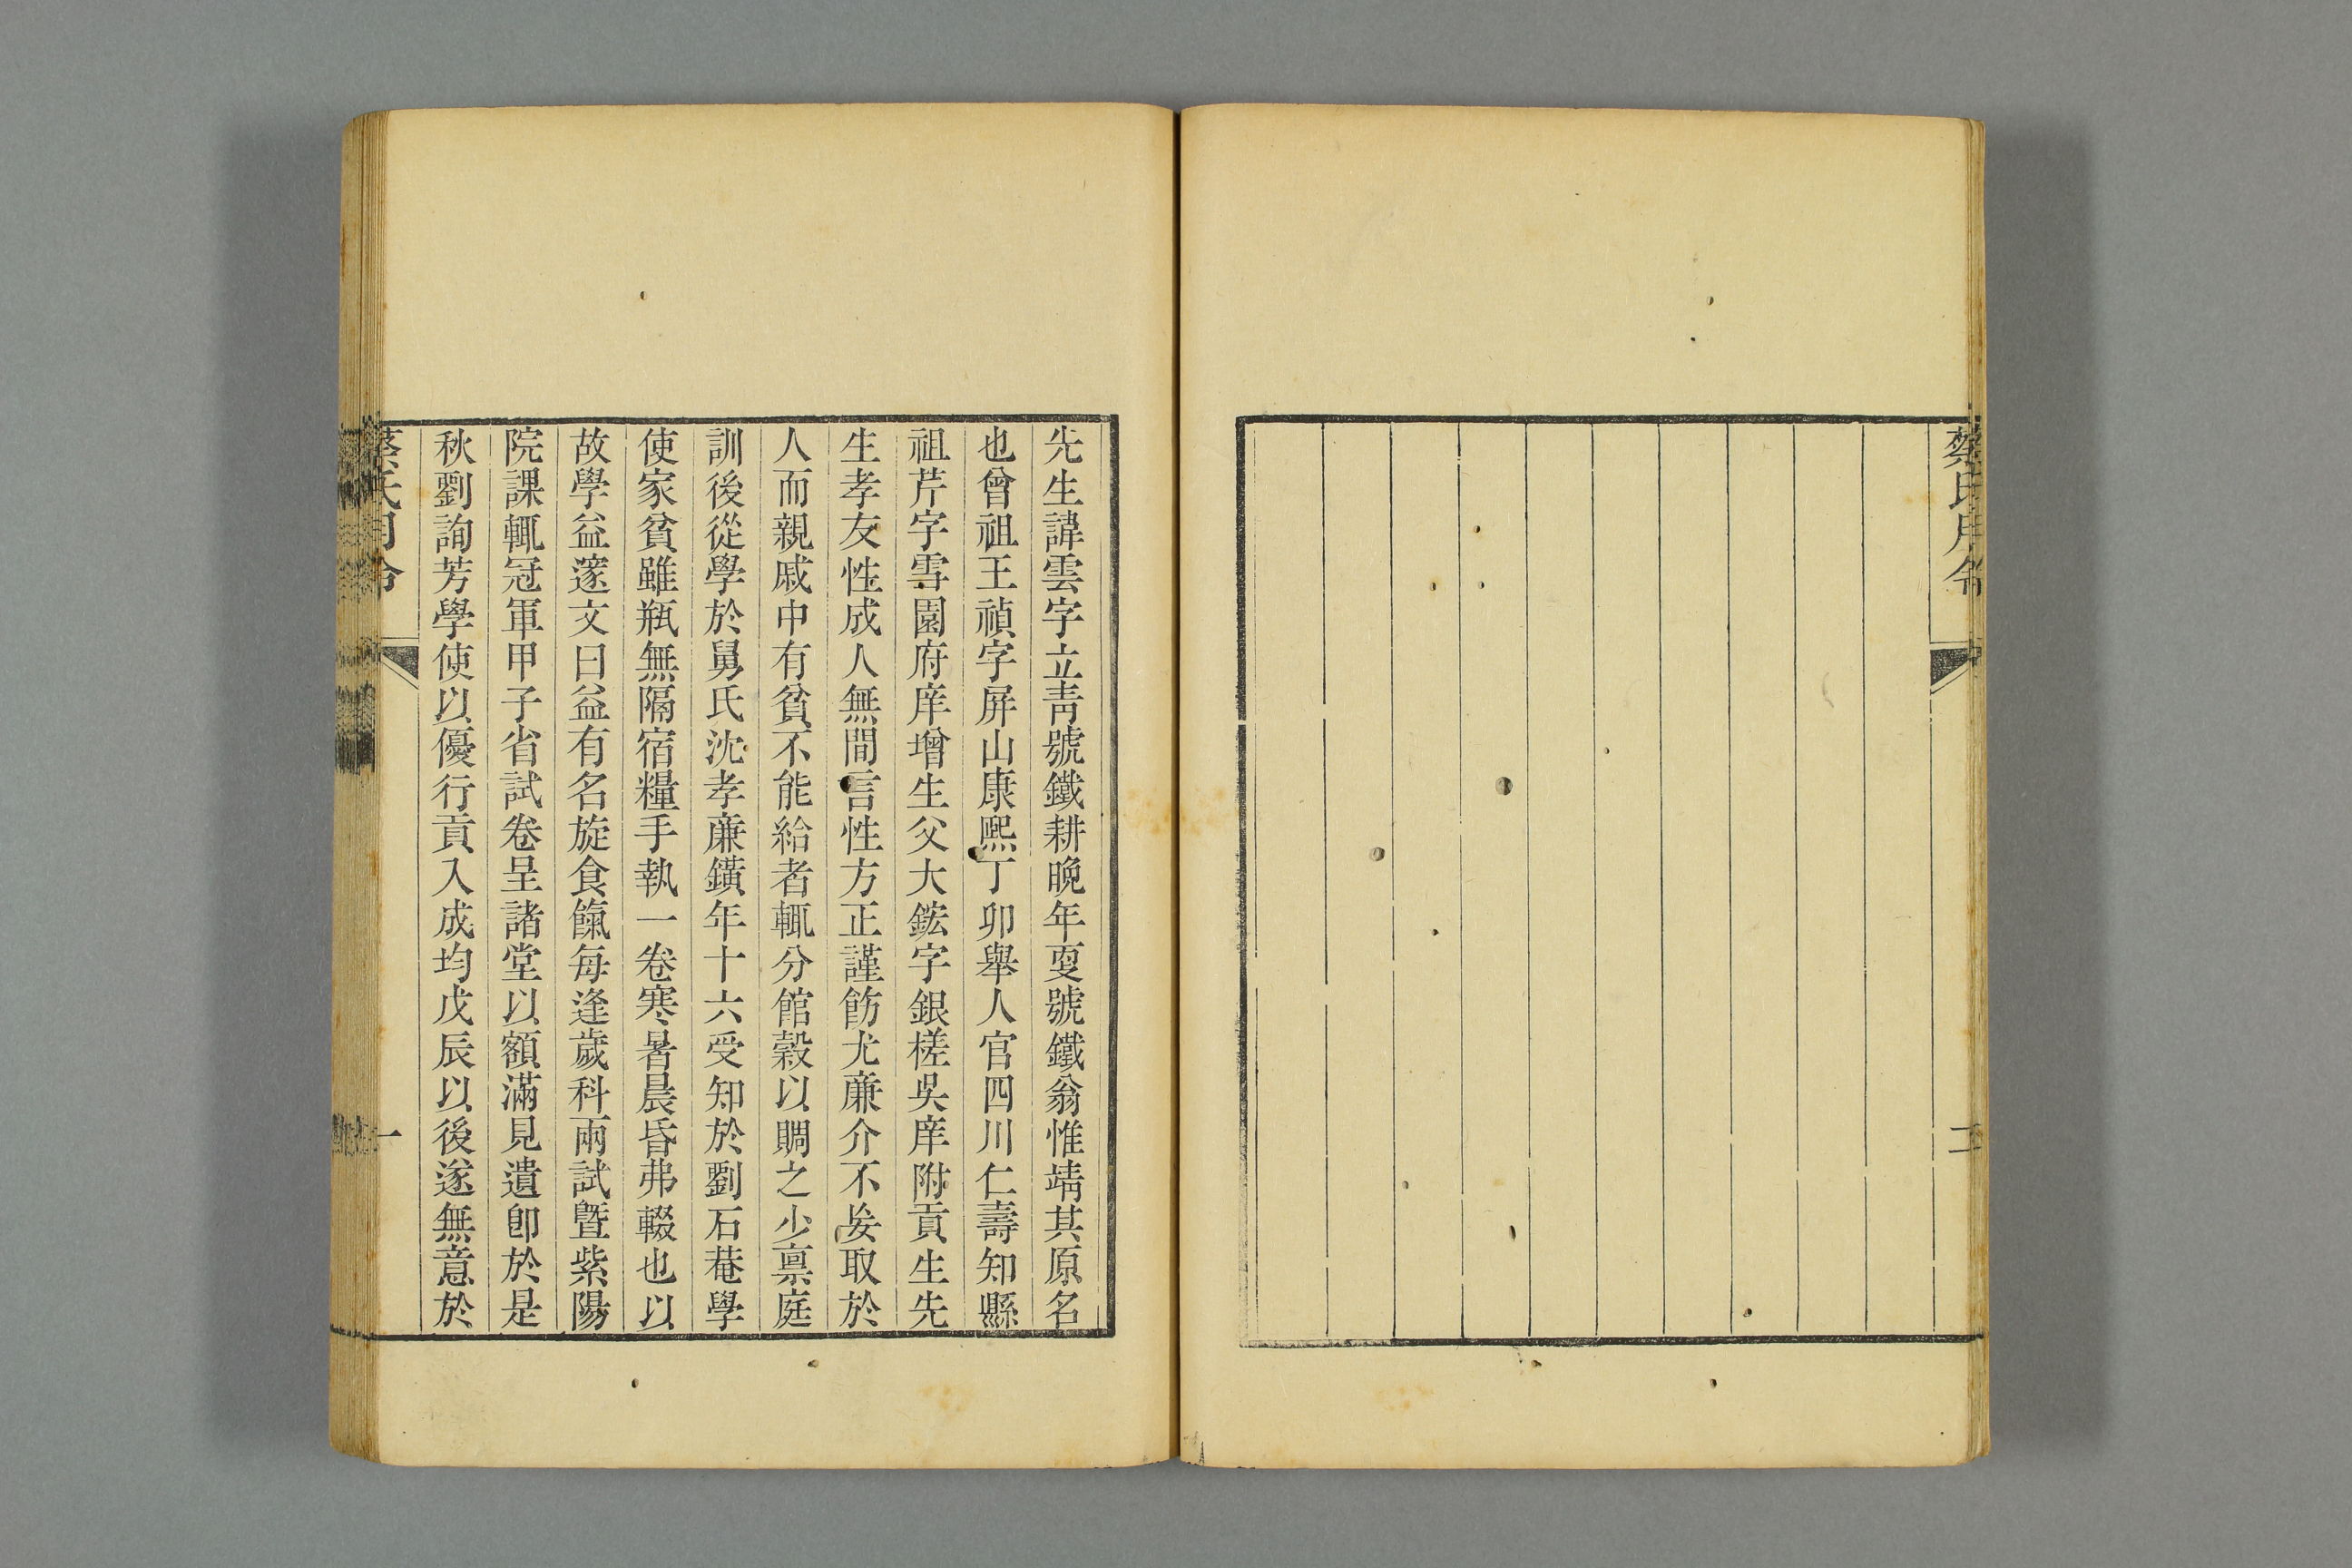 蔡氏月令
二
先生諱雲字立青號鐵耕晚年更號鐵翁惟靖其原名
也曾祖王禎字屏山康熙丁卯舉人官四川仁壽知縣
祖芹字雪園府庠增生父大鋐字銀槎吳庠附貢生先
生孝友性成人無間言性方正謹飭尤廉介不妄取於
人而親戚中有貧不能給者輒分館穀以賙之少禀庭
訓後從學於舅氏沈孝廉鐄年十六受知於劉石菴學
使家貧雖瓶無隔宿糧手執一卷寒暑晨昏弗輟也以
故學益邃文曰益有名旋食餼每逢歲科兩試曁紫陽
院課輒冠軍甲子省試卷呈諸堂以額滿見遺卽於是
秋劉詢芳學使以優行貢入成均戊辰以後遂無意於
蔡氏月令
一